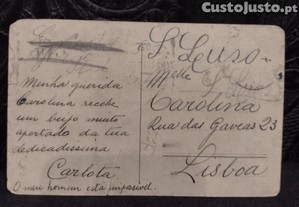 CustoJusto.pt
Minha querida
Carolina recebe
um beijo muito
apertado da tua
dedicadissima
Carlota
O meu homem está impasivel.
S. Luso
M.elle
Carolina
Rua das Gaveas 23
Lisboa